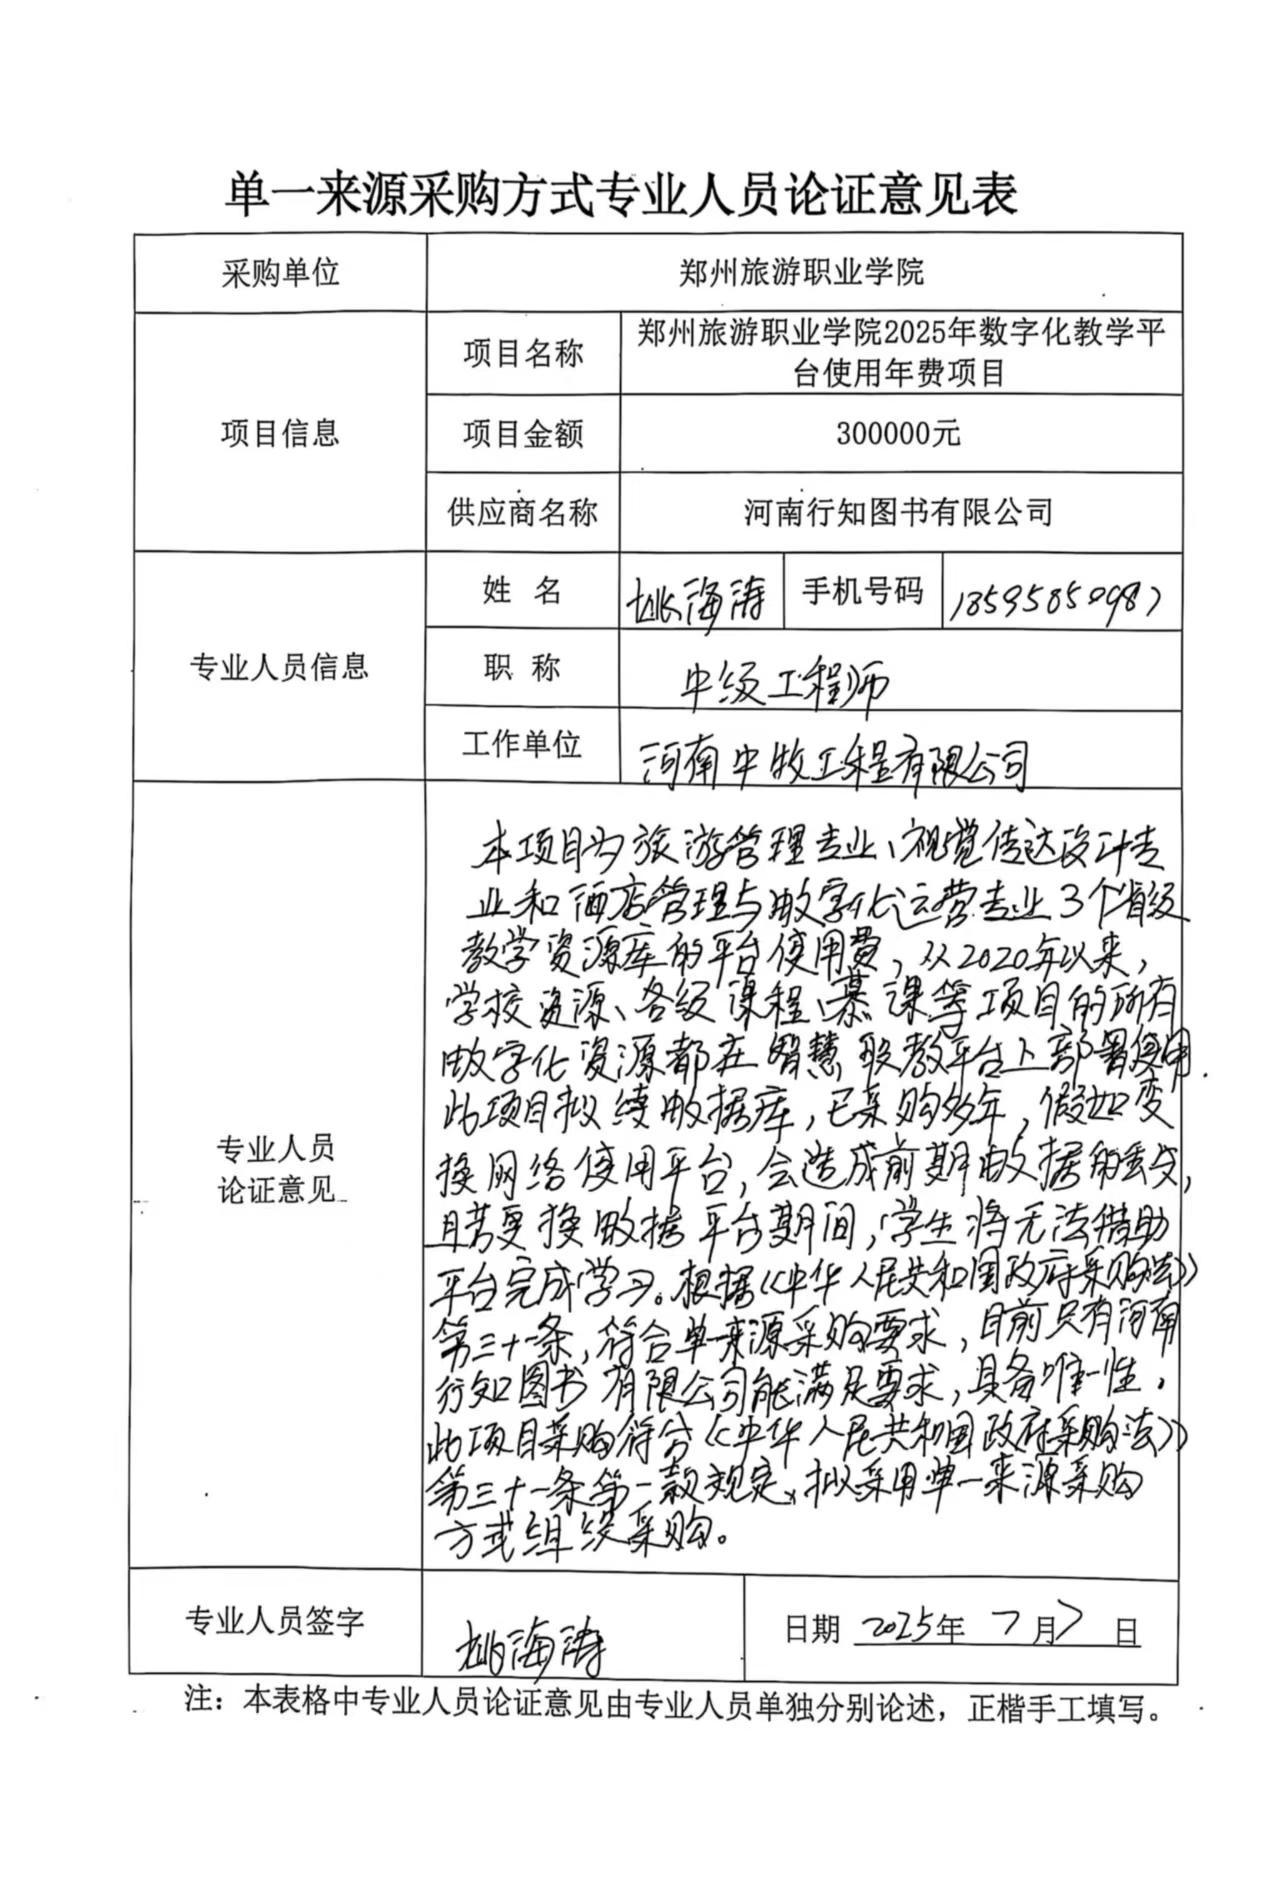 单一来源采购方式专业人员论证意见表
采购单位
郑州旅游职业学院
项目信息
项目名称
郑州旅游职业学院2025年数字化教学平
台使用年费项目
项目金额
300000元
供应商名称
河南行知图书有限公司
专业人员信息
姓 名
姚海涛
手机号码
18595850987
职 称
中级工程师
工作单位
河南中牧工程有限公司
专业人员
论证意见
本项目为旅游管理专业、视觉传达设计专
业和酒店管理与数字化运营专业3个省级
教学资源库的平台使用费，从2020年以来，
学校资源、各级课程、慕课等项目的所有
数字化资源都在智慧职教平台上部署使用.
此项目拟续数据库，已采购多年，假如变
换网络使用平台，会造成前期数据的丢失，
且若更换数据平台期间，学生将无法借助
平台完成学习。根据《中华人民共和国政府采购法》
第三十一条，符合单一来源采购要求，目前只有河南
行知图书有限公司能满足要求，具备唯一性。
此项目采购符合《中华人民共和国政府采购法》
第三十一条第一款规定，拟采用单一来源采购
方式组织采购。
专业人员签字
姚海涛
日期 2025年 7月7日
注：本表格中专业人员论证意见由专业人员单独分别论述，正楷手工填写。